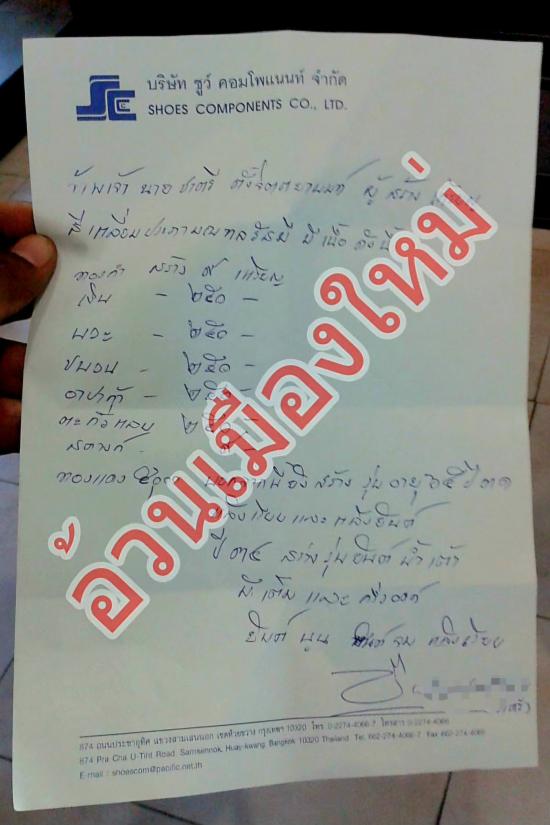 บริษัท ชูว์ คอมโพแนนท์ จำกัด
SHOES COMPONENTS CO., LTD.
ข้าพเจ้า นาย ชาตรี ผู้สร้าง
มีเนื้อ ดังนี้
ทองคำ สร้าง ๙ เหรียญ
เงิน - ๒๕๐ -
นวะ - ๒๕๐ -
ชนวน - ๒๕๐ -
อาปาก้า - ๒๕๐ -
ตะกั่ว ๒๕๐ -
ทองแดง สร้าง รุ่น อายุ ๖๕ ปี ๓๑
หลังเรียบ และ หลังยันต์
ปี ๓๕ สร้าง รุ่น ยันต์ น้ำเต้า
มี เต็ม และ ครึ่งองค์
ยันต์ นูน ยันต์ จม หลังเรียบ
อ้วนเมืองใหม่
874 ถนนประชาอุทิศ แขวงสามเสนนอก เขตห้วยขวาง กรุงเทพฯ 10320 โทร. 0-2274-4066-7 โทรสาร 0-2274-4066
874 Pra Cha U-Tint Road, Samsennok, Huay-kwang, Bangkok 10320 Thailand Tel: 662-274-4066-7 Fax 662-274-4066
E-mail : shoescom@pacific.net.th